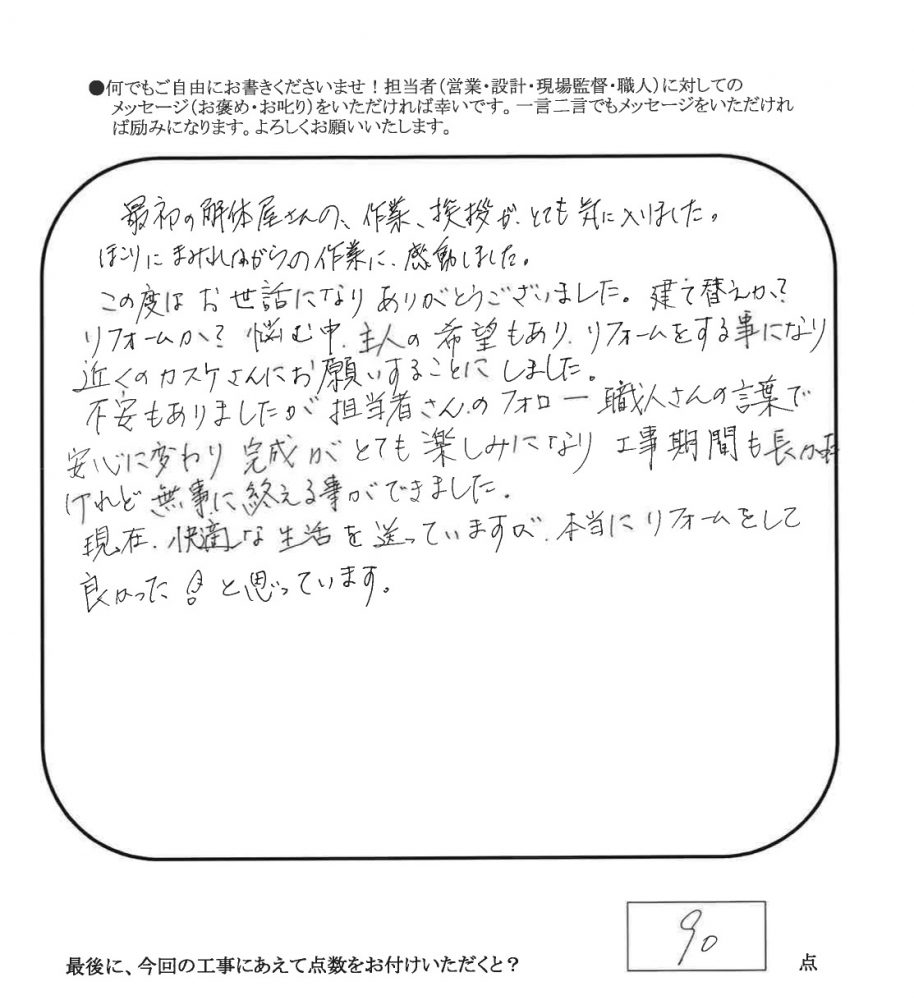 ●何でもご自由にお書きくださいませ！担当者（営業・設計・現場監督・職人）に対しての
メッセージ（お褒め・お叱り）をいただければ幸いです。一言二言でもメッセージをいただけれ
ば励みになります。よろしくお願いいたします。
最初の解体屋さんの、作業、挨拶が、とても気に入りました。
ほこりにまみれながらの作業に、感動しました。
この度はお世話になりありがとうございました。建て替えか？
リフォームか？悩む中、主人の希望もあり、リフォームをする事になり
近くのカスケさんにお願いすることにしました。
不安もありましたが担当者さんのフォロー職人さんの言葉で
安心に変わり完成がとても楽しみになり工事期間も長かった
けれど無事に終える事ができました。
現在、快適な生活を送っていますが、本当にリフォームをして
良かった！と思っています。
90
最後に、今回の工事にあえて点数をお付けいただくと？ 点